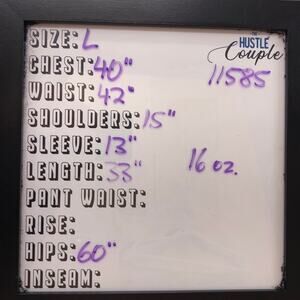 SIZE: L
THE
HUSTLE
Couple
CHEST: 40"
11585
WAIST: 42"
SHOULDERS: 15"
SLEEVE: 13"
16 oz.
LENGTH: 33"
PANT WAIST:
RISE:
HIPS: 60"
INSEAM: